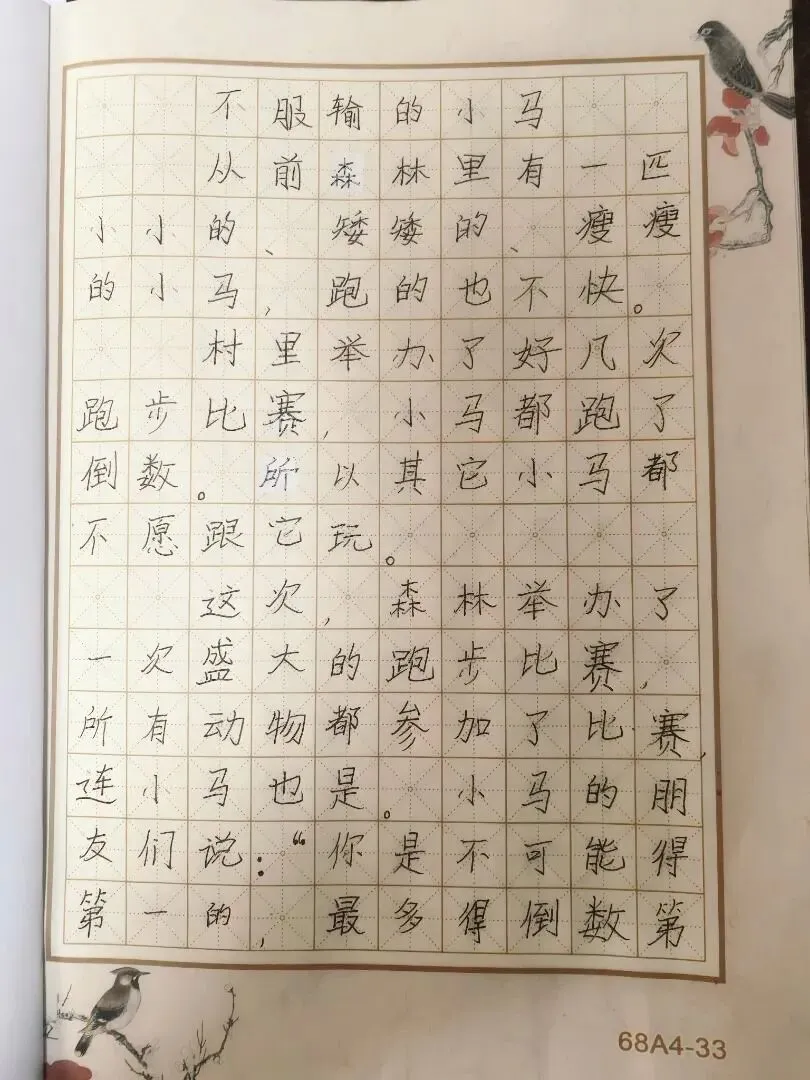 不服输的小马
从前森林里有一匹
小小的、矮矮的、瘦瘦
的小马，跑的也不快。
村里举办了好几次
跑步比赛，小马都跑了
倒数。所以其它小马都
不愿跟它玩。
这次，森林举办了
一次盛大的跑步比赛，
所有动物都参加了比赛，
连小马也是。小马的朋
友们说：“你是不可能得
第一的，最多得倒数第
68A4-33